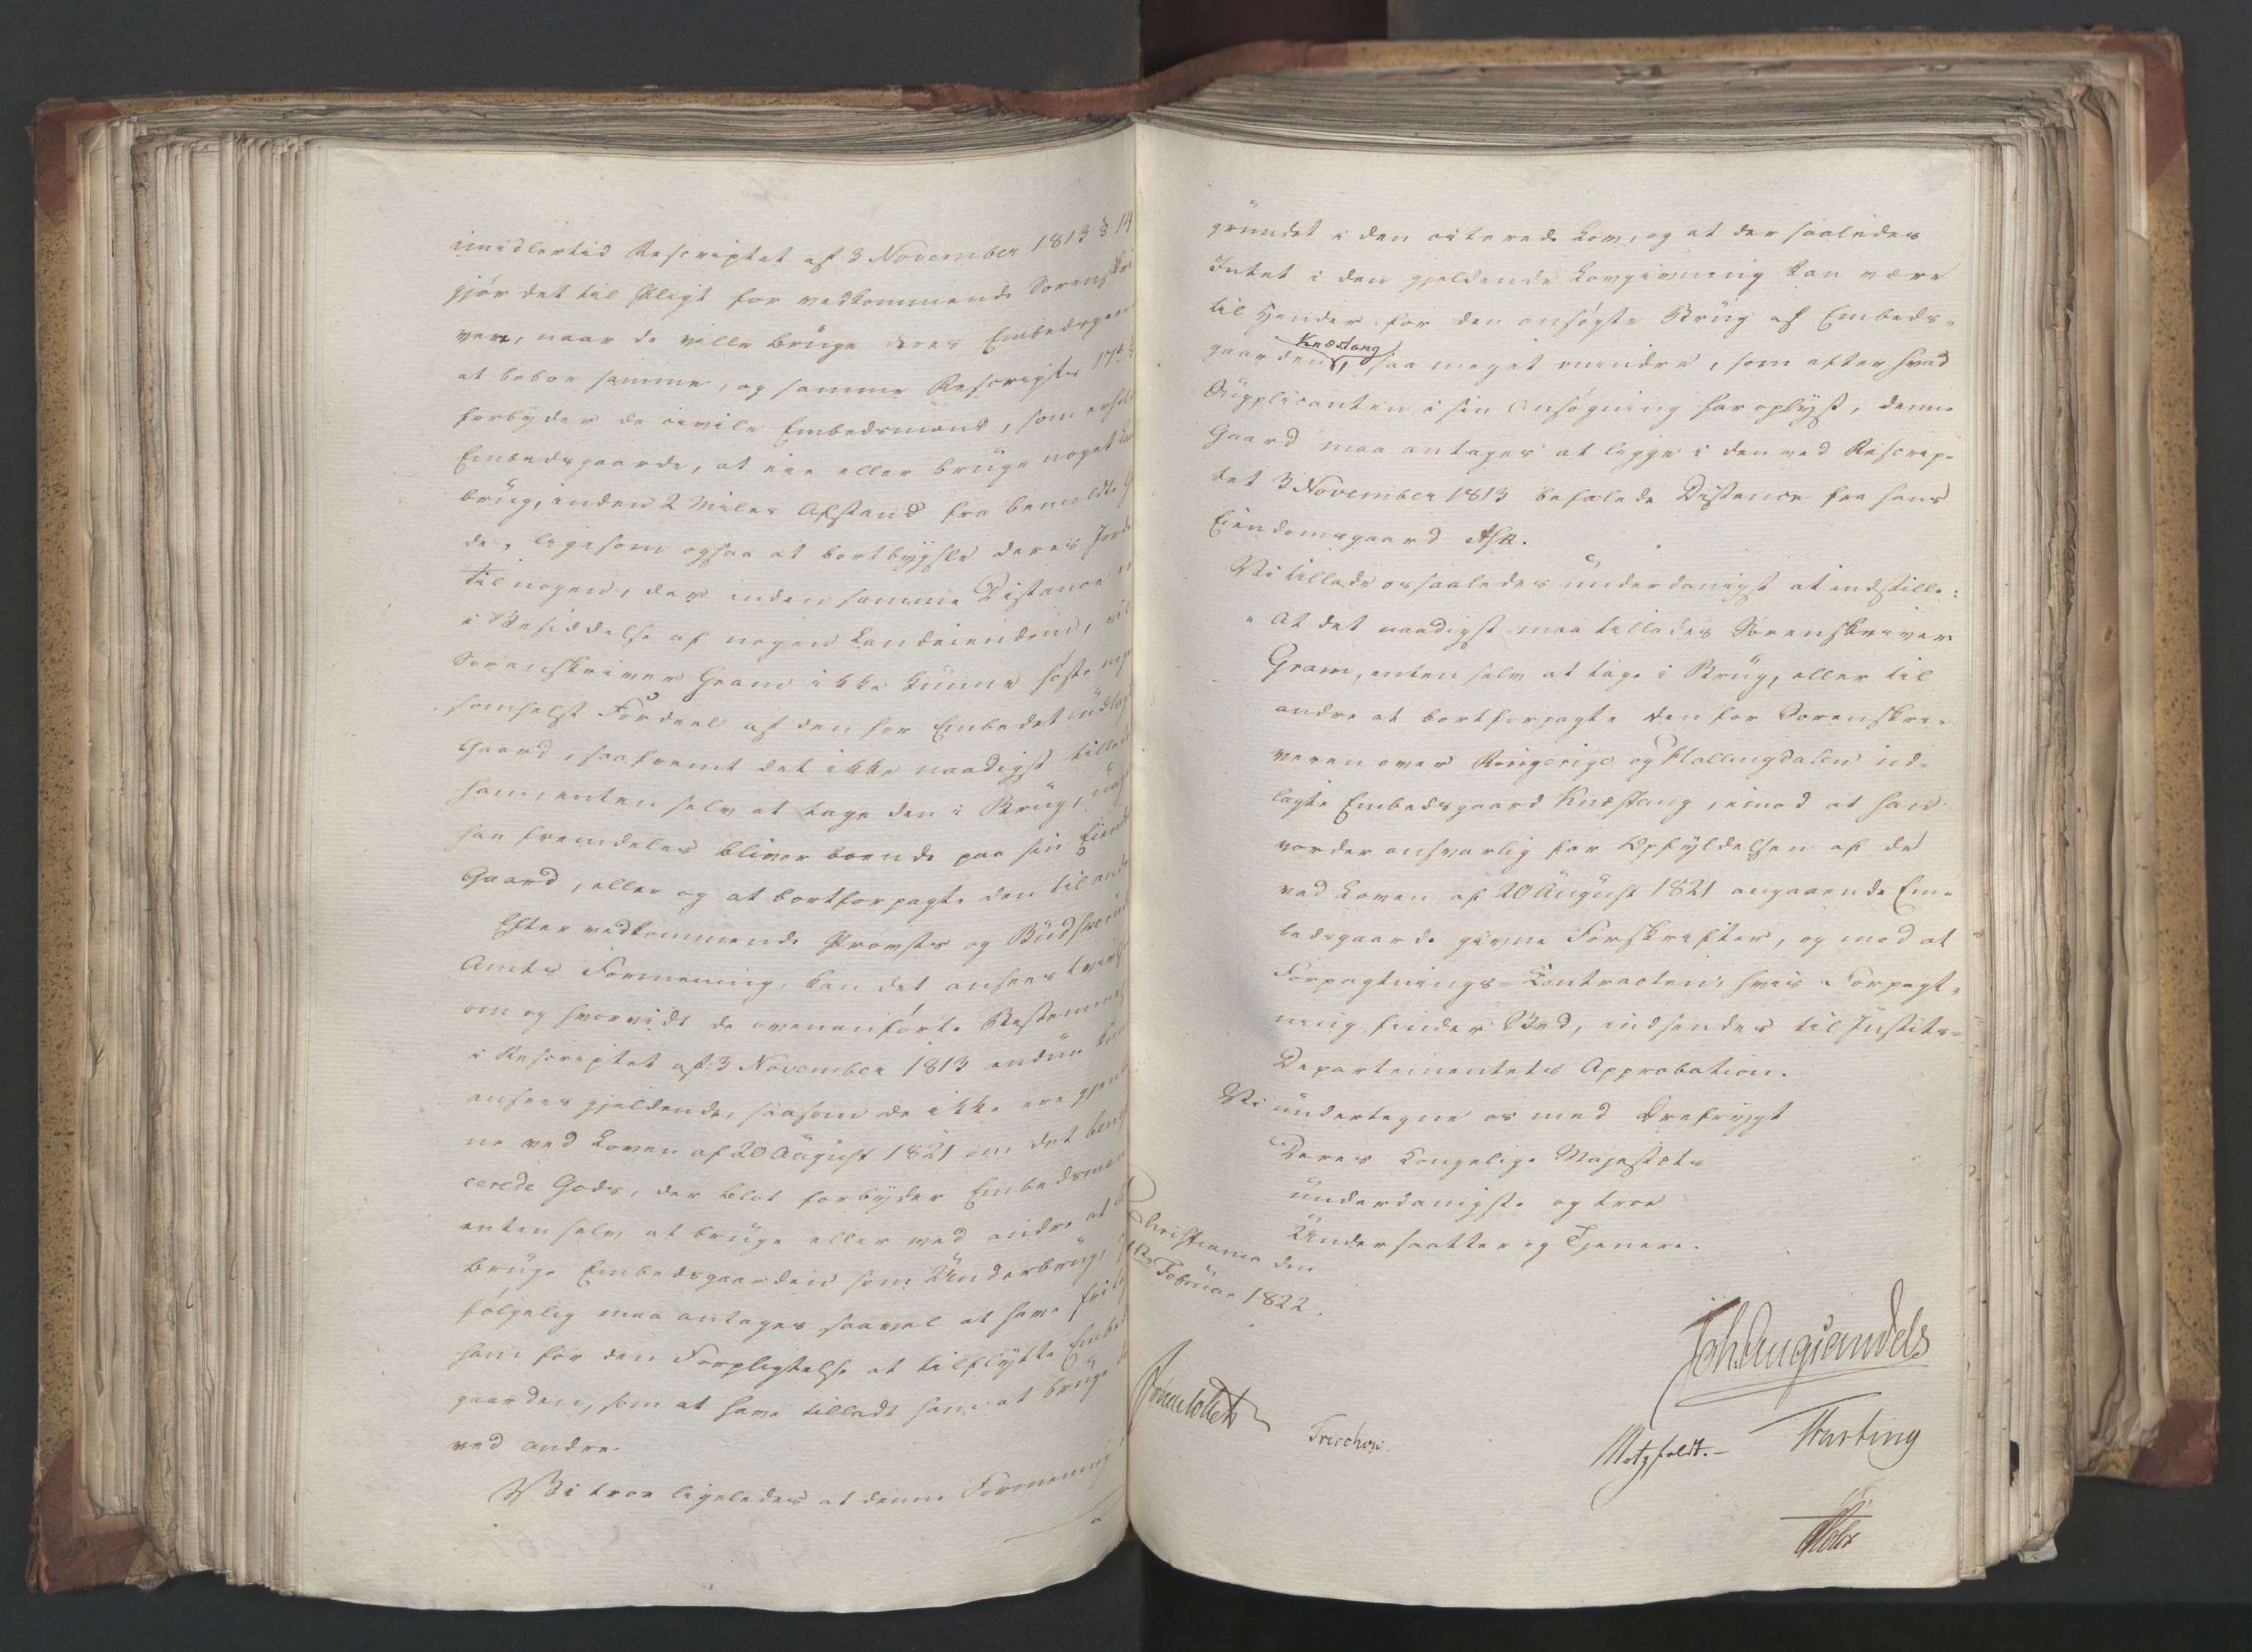 imidlertid Rescriptet af 3 November 1813 § 14
gjør det til Pligt for vedkommende Sorenskri
vere, naar de ville bruge deres Embedsgaar
at beboe samme, og samme Rescripts 17de §
forbyder de civile Embedsmænd, som erhol
Embedsgaarde, at eie eller bruge noget
brug, inden 2 Miles Afstand fra bemeldte
de, ligesom ogsaa at bortbygsle deres Jorde
til nogen, der inden samme Distance er
i Besiddelse af nogen Landeiendom, vil
Sorenskriver Gram ikke kunne høste noge
somhelst Fordeel af den for Embedet udlagt
Gaard, saafremt det ikke naadigst tillade
ham, enten selv at tage den i Brug,
han fremdeles bliver boende paa sin Eiend
Gaard, eller og at bortforpagte den til andr
Efter vedkommende Provsts og Budskerud
Amts Formening, kan det ansees tvivl
om og hvorvidt de ovenanførte Bestemmel
i Rescriptet af 3 November 1813 endnu kun
ansees gjeldende, saasom de ikke ere gjent
ne ved Loven af 20 August 1821 om det benef
cerede Gods, der blot forbyder Embedsmæn
enten selv at bruge eller ved andre at
bruge Embedsgaarden som Underbrug,
følgelig maa antages saavel at have frit
ham for den Forpligtelse at tilflytte Embe
gaarden, som at have tilladt ham at bruge
ved andre.
Vi troe ligeledes at denne Formening
grundet i den citerede Lov, og at der saaledes
Intet i den gjeldende Lovgivning kan være
til Hinder for den ansøgte Brug af Embeds-
gaarden Knæstang, saa meget mindre, som efter hvad
Supplicanten i sin Ansøgning har oplyst, denne
Gaard maa antages at ligge i den ved Rescrip-
tet 3 November 1813 befalede Distance fra hans
Eiendomsgaard Ask.
Vi tillade os saaledes underdanigst at indstille:
"At det naadigst maa tillades Sorenskriver
Gram, enten selv at tage i Brug, eller til
andre at bortforpagte den for Sorenskri-
veren over Ringerige og Hallingdalen ud-
lagte Embedsgaard Knæstang, imod at han
vorder ansvarlig for Opfyldelsen af de
ved Loven af 20 August 1821 angaaende Em-
bedsgaarde givne Forskrifter, og mod at
Forpagtnings-Contracten, hvis Forpagt-
ning finder Sted, indsendes til Justits-
Departementets Approbation.
Vi undertegne os med Ærefrygt
Deres Kongelige Majestæts
underdanigste og troe
Undersaatter og Tjenere.
Christiania den
12 Februar 1822.
Joh. Aug. Sandels
Jonas Collett
Treschow.
Motzfeldt.
Krefting
Holst